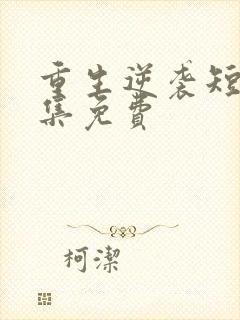 重生逆袭短
集免費
柯潔